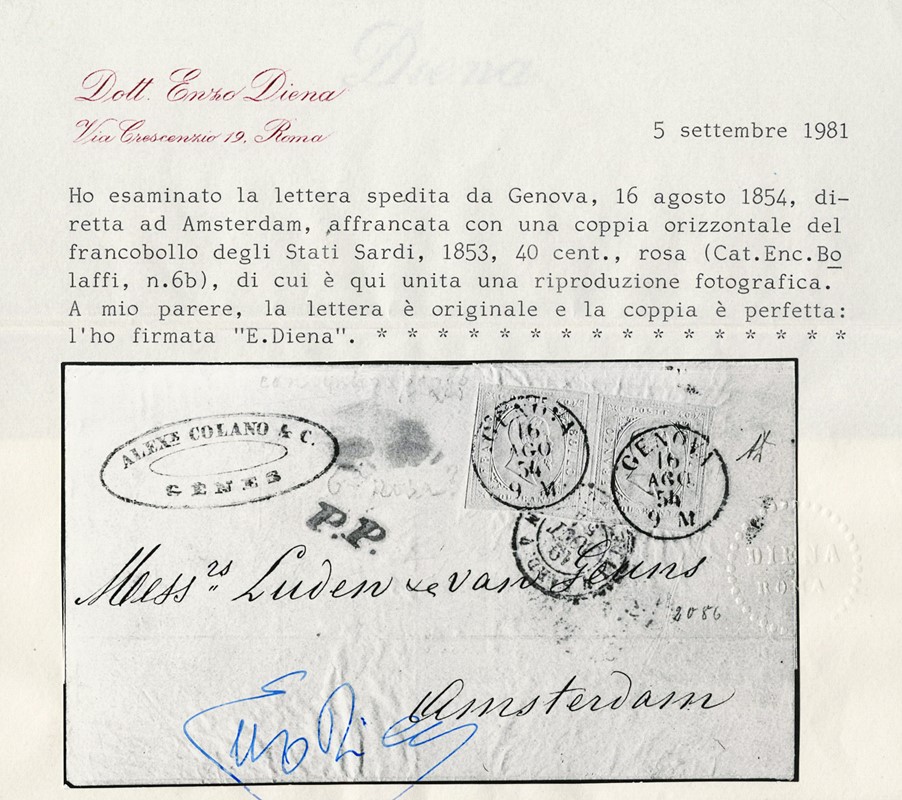 Dott. Enzo Diena
Via Crescenzio 19, Roma
5 settembre 1981
Ho esaminato la lettera spedita da Genova, 16 agosto 1854, di-
retta ad Amsterdam, affrancata con una coppia orizzontale del
francobollo degli Stati Sardi, 1853, 40 cent., rosa (Cat.Enc.Bo
laffi, n.6b), di cui è qui unita una riproduzione fotografica.
A mio parere, la lettera è originale e la coppia è perfetta:
l'ho firmata "E.Diena". * * * * * * * * * * * * * * * * *
ALEXE COLANO & C.
GENES
GENOVA
16
AGO
54
9 M
GENOVA
16
AGO
54
9 M
P.P.
DIENA
ROMA
Messrs Luden & van Geuns
2086
Amsterdam
Enzo Diena